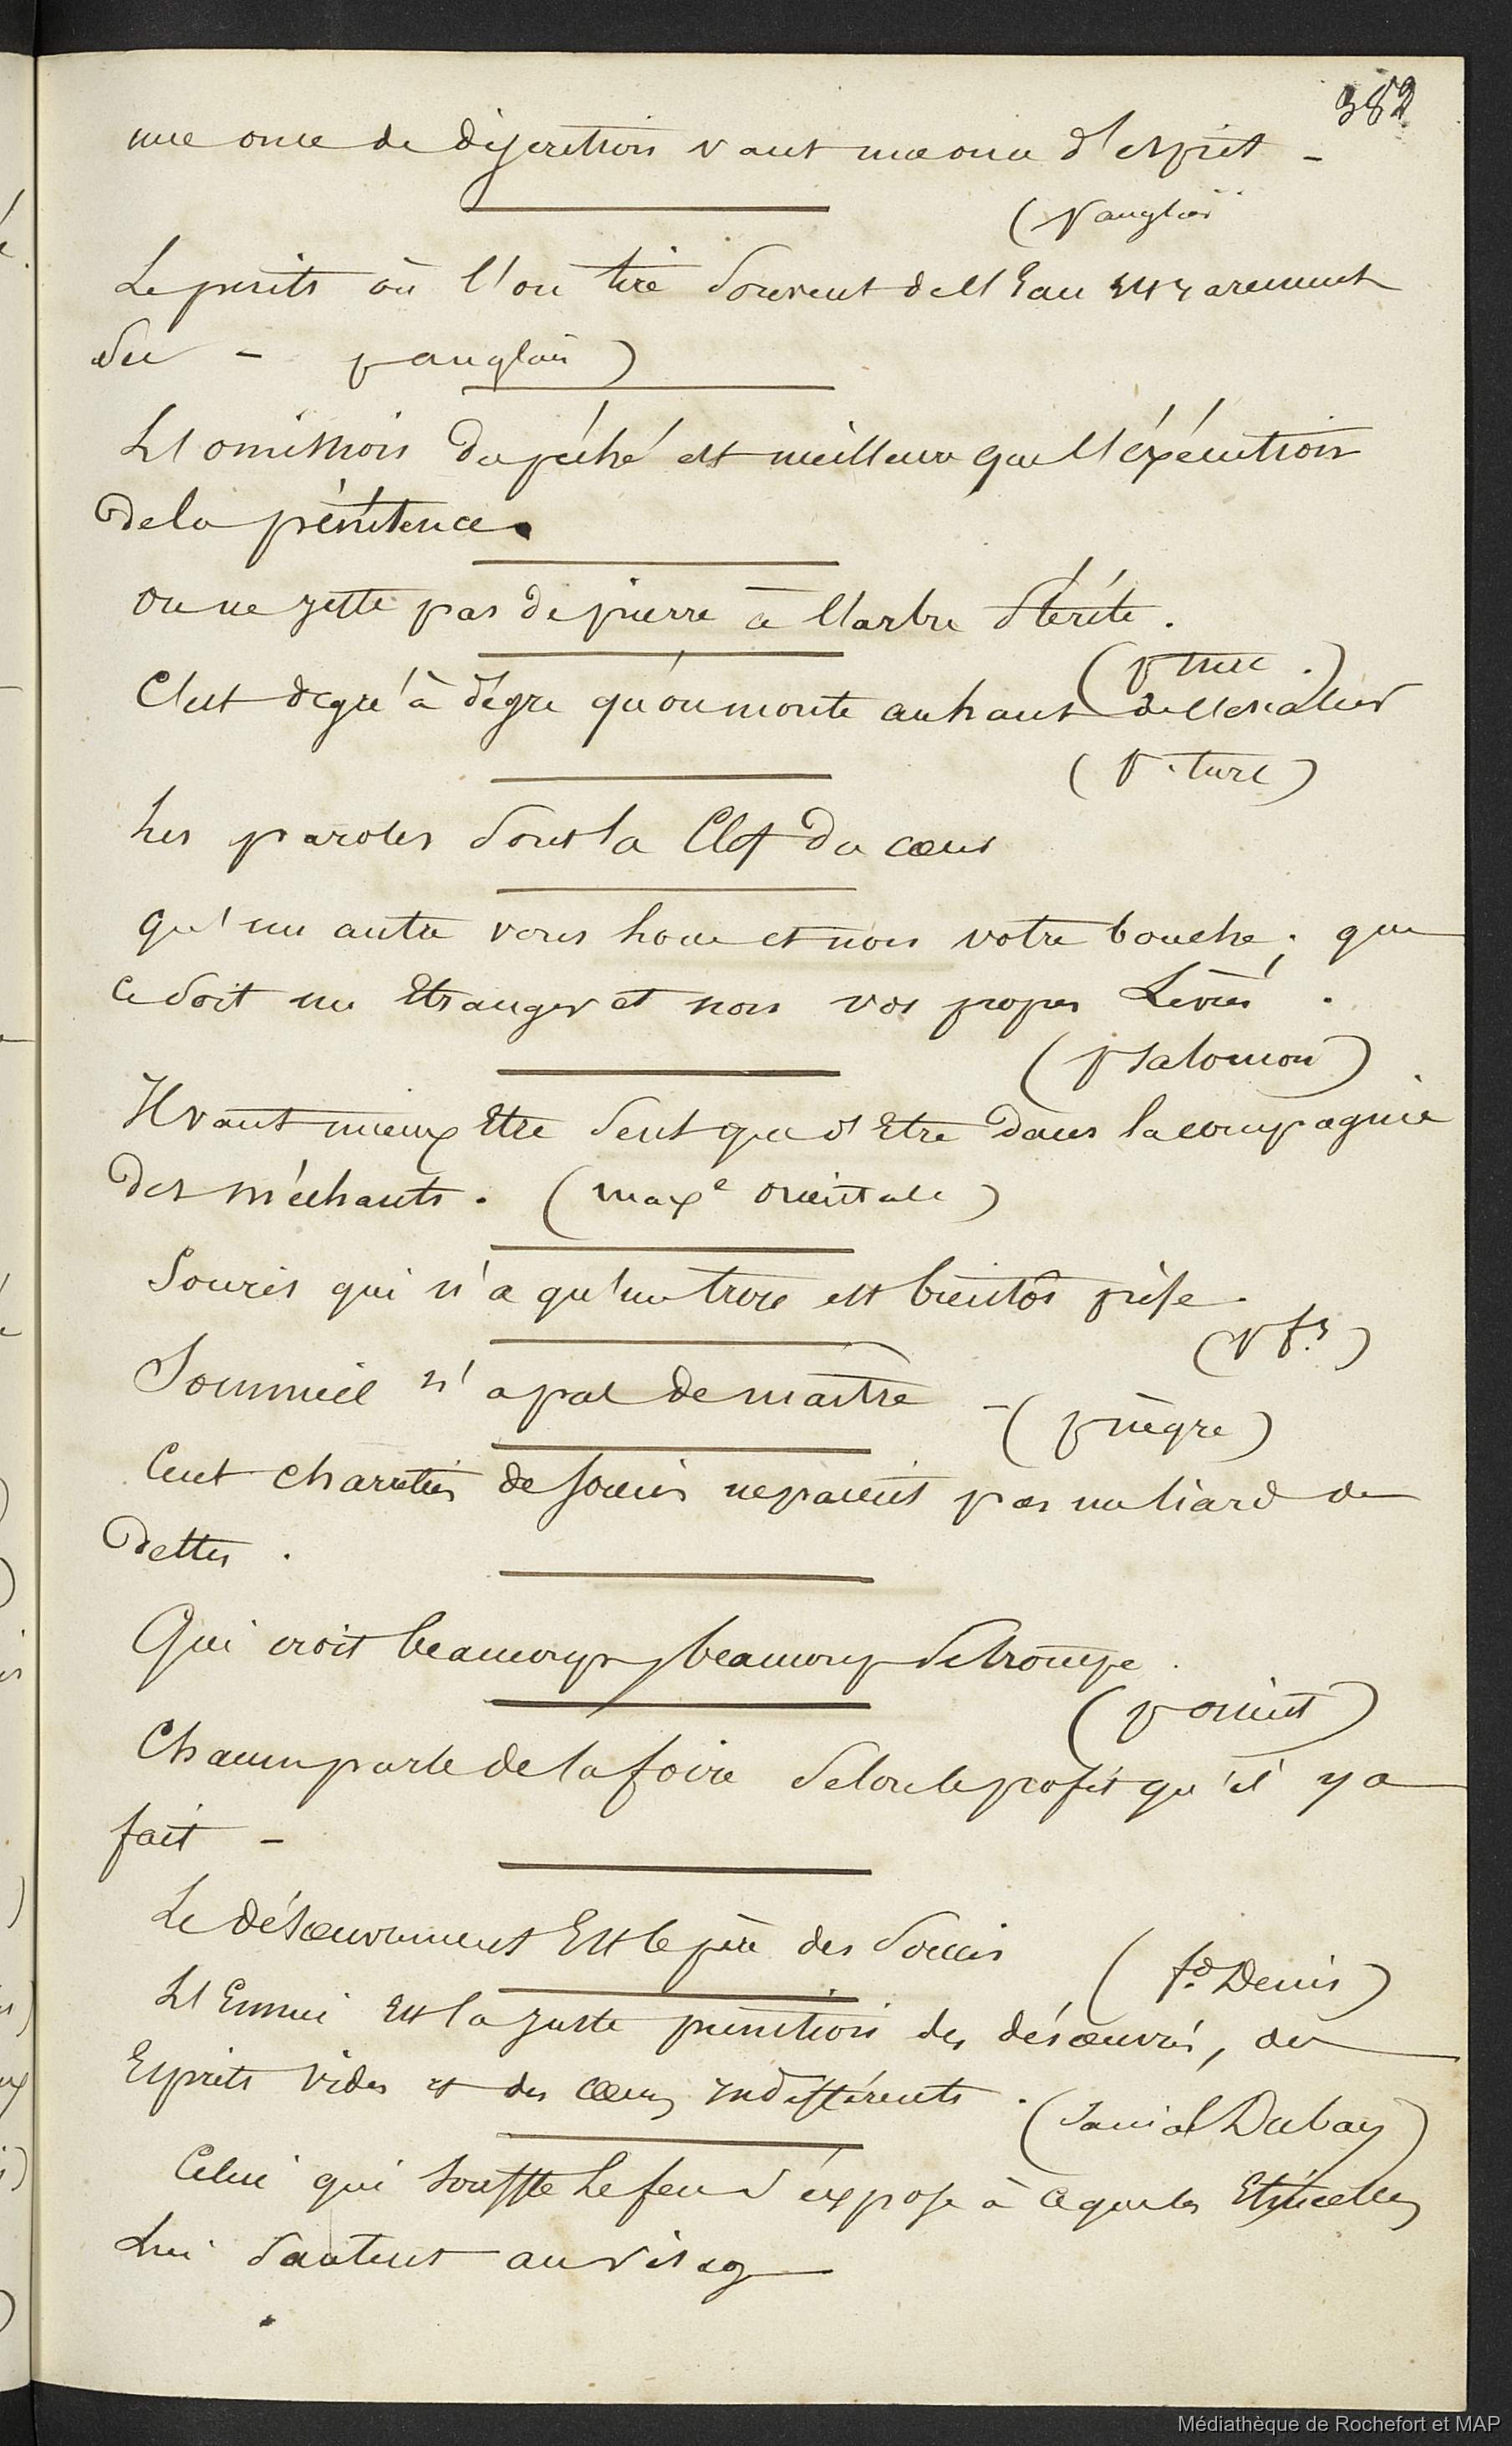 382
une once de discrétion vaut une once d'esprit -
(p anglais
Le puits où l'on tire souvent de l'Eau est rarement
sec - p anglais)
L'omission du péché est meilleure que l'éxécution
de la pénitence.
on ne jette pas de pierre à l'arbre stérile.
(p turc.)
C'est dégré à dégré qu'on monte au haut de l'escalier
(p. turc)
Les paroles sont la Clef du cœur
qu'un autre vous loue et non votre bouche; que
ce soit un Etranger et non vos propres Lèvres.
(p Salomon)
Il vaut mieux Etre seul que d'Etre dans la compagnie
des méchants. (maxe orientale)
Souris qui n'a qu'un trou est bientôt prise.
(p fr)
Sommeil n'a pas de maitre - (p nègre)
Cent charretées de soucis ne paient pas un liard de
dettes.
Qui croit beaucoup, beaucoup se trompe.
(p orient)
Chacun parle de la foire selon le profit qu'il y a
fait -
Le désœuvrement Est le père des soucis
(fd Denis)
L'Ennui Est la juste punition des désœuvrés, des
Esprits vides et des cœurs indifférents.
(Sanial Dubay)
Celui qui souffle le feu s'éxpose à ce que les Etincelles
Lui sautent au visage
Médiathèque de Rochefort et MAP